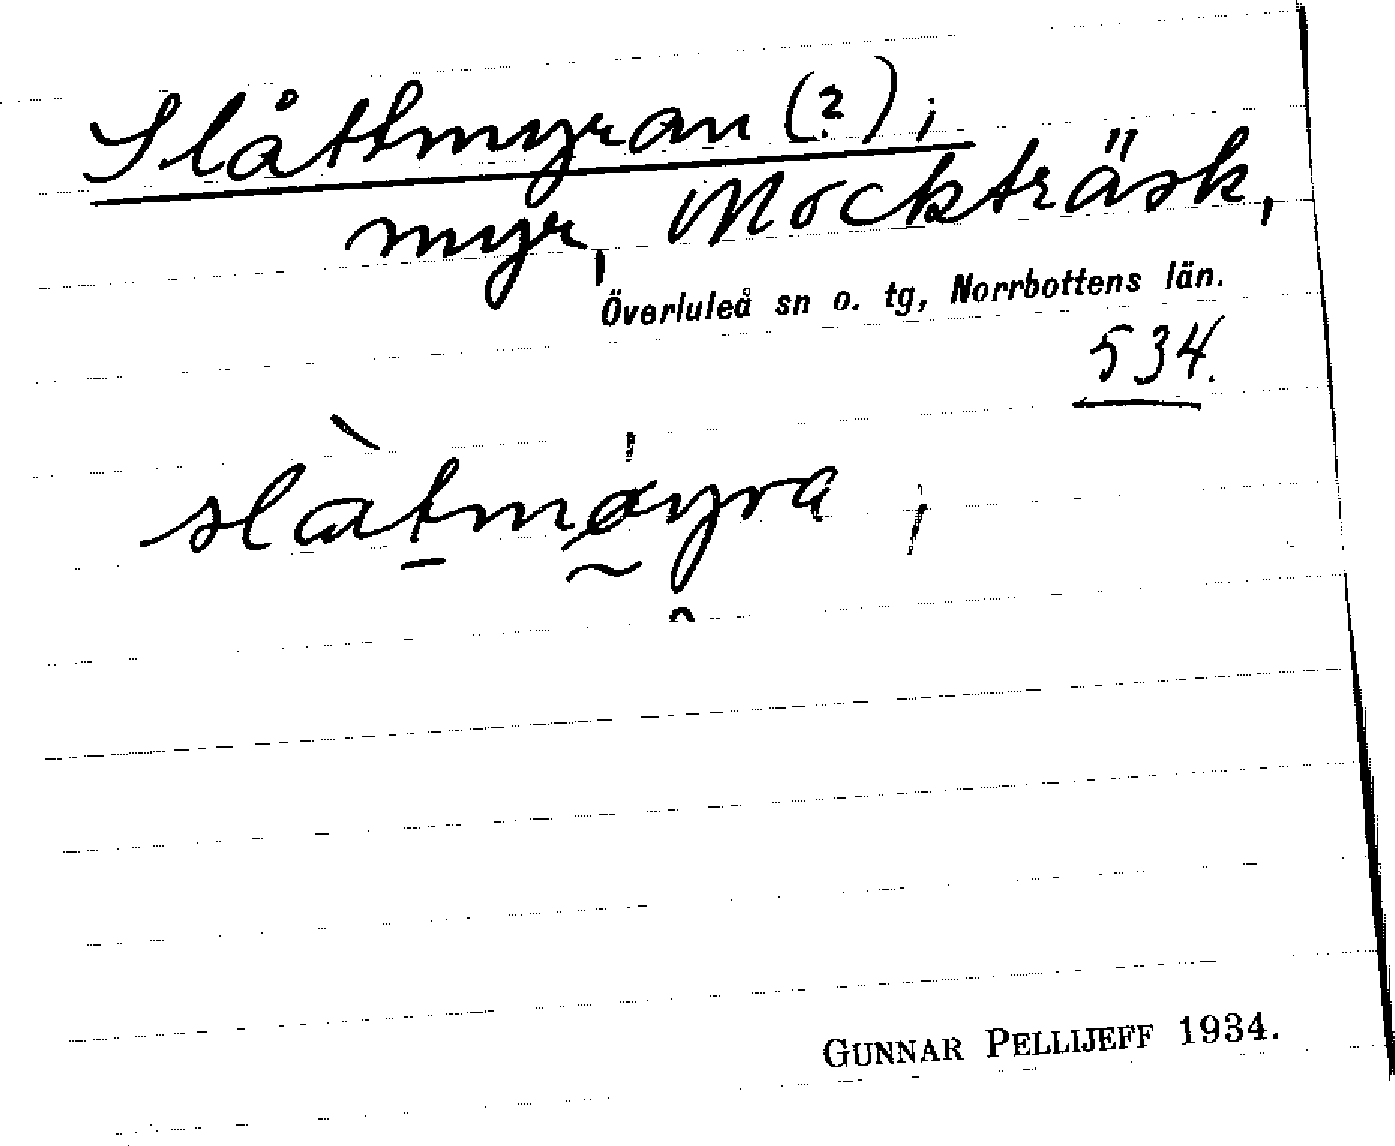 Slåttmyran (?),
myr, Mockträsk,
Överluleå sn o. tg, Norrbottens län.
534.
slàtmøyra,
GUNNAR PELLIJEFF 1934.